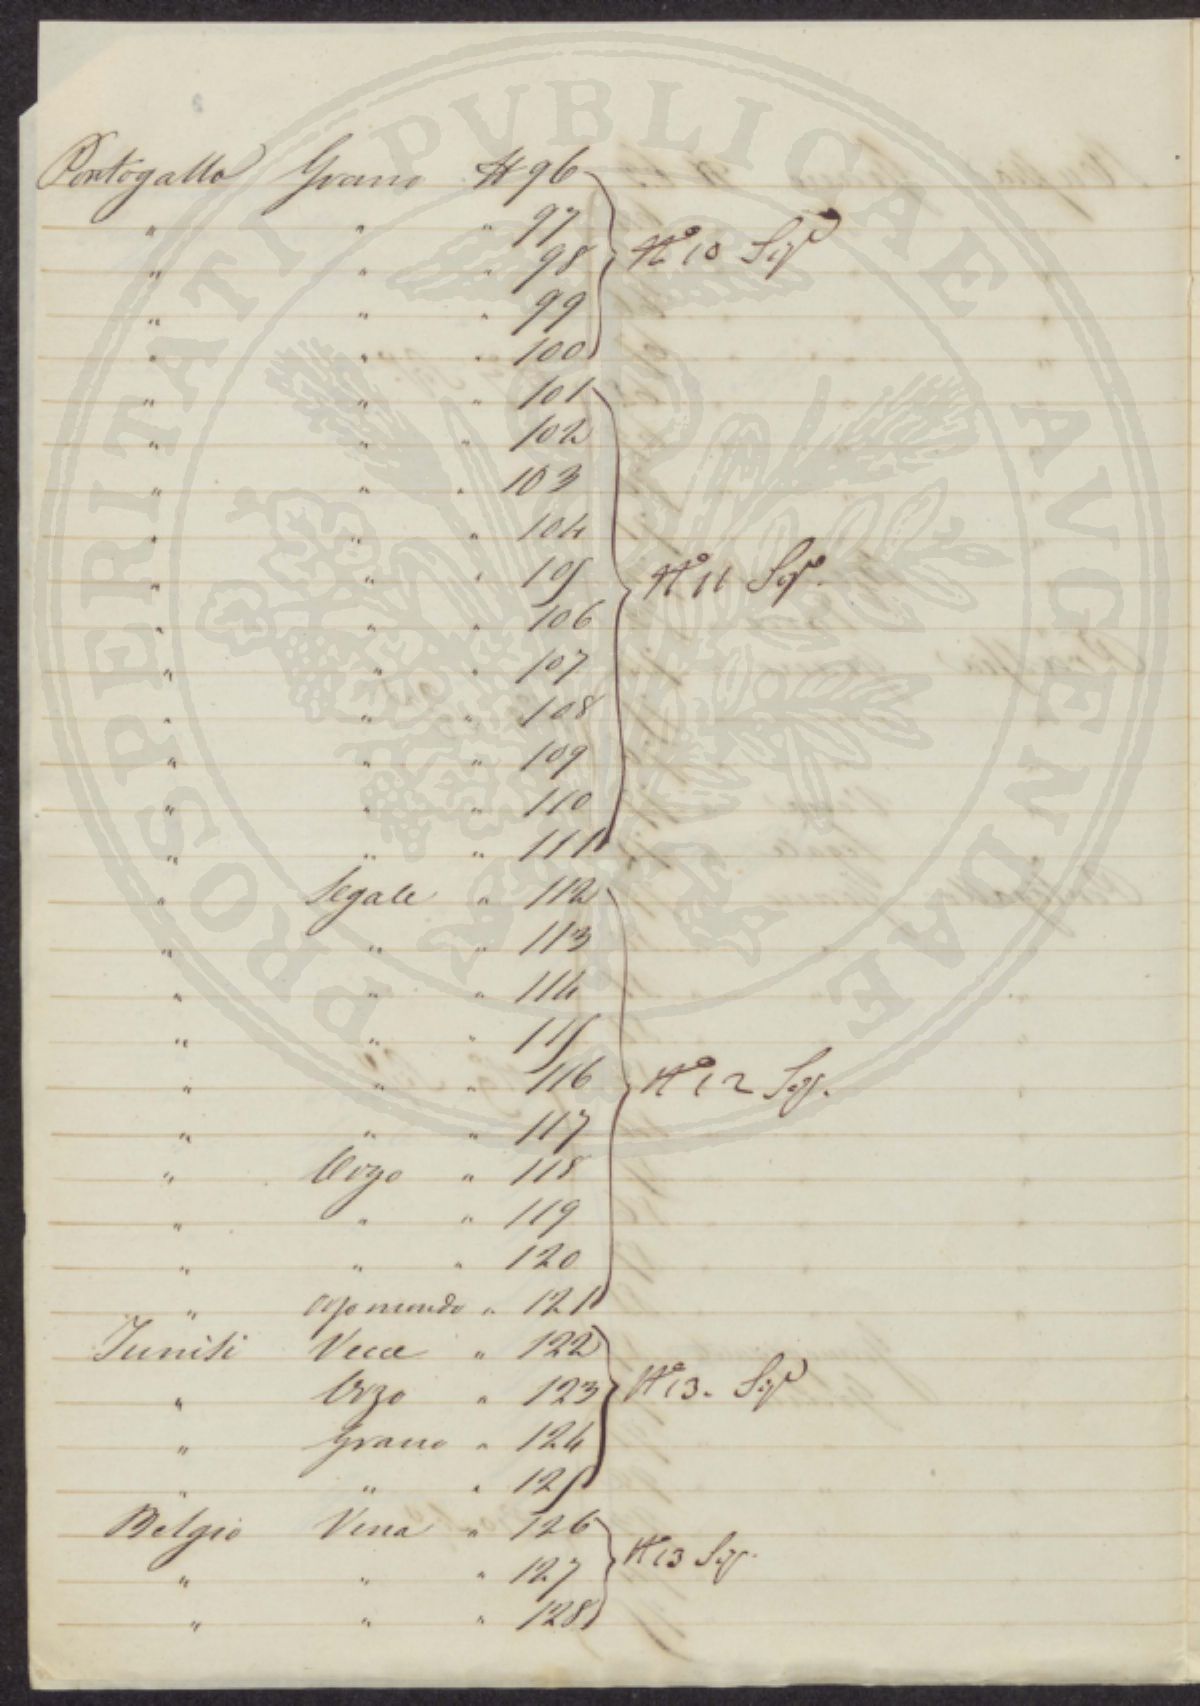 PROSPERITATI PVBLICAE AVGENDAE
Portogallo Grano N 96
" " " 97
" " " 98 } N° 10 Sigº
" " " 99
" " " 100
" " " 101
" " " 102
" " " 103
" " " 104
" " " 105 } N° 11 Sigº.
" " " 106
" " " 107
" " " 108
" " " 109
" " " 110
" " " 111
" Segale " 112
" " " 113
" " " 114
" " " 115
" " " 116 } N° 12 Sig.
" " " 117
" Orzo " 118
" " " 119
" " " 120
" Orzo mundo " 121
Tunisi Vecce " 122
" Orzo " 123 } N° 13. Sigº
" Grano " 124
" " " 125
Belgio Vena " 126
" " " 127 } N° 13 Sig.
" " " 128